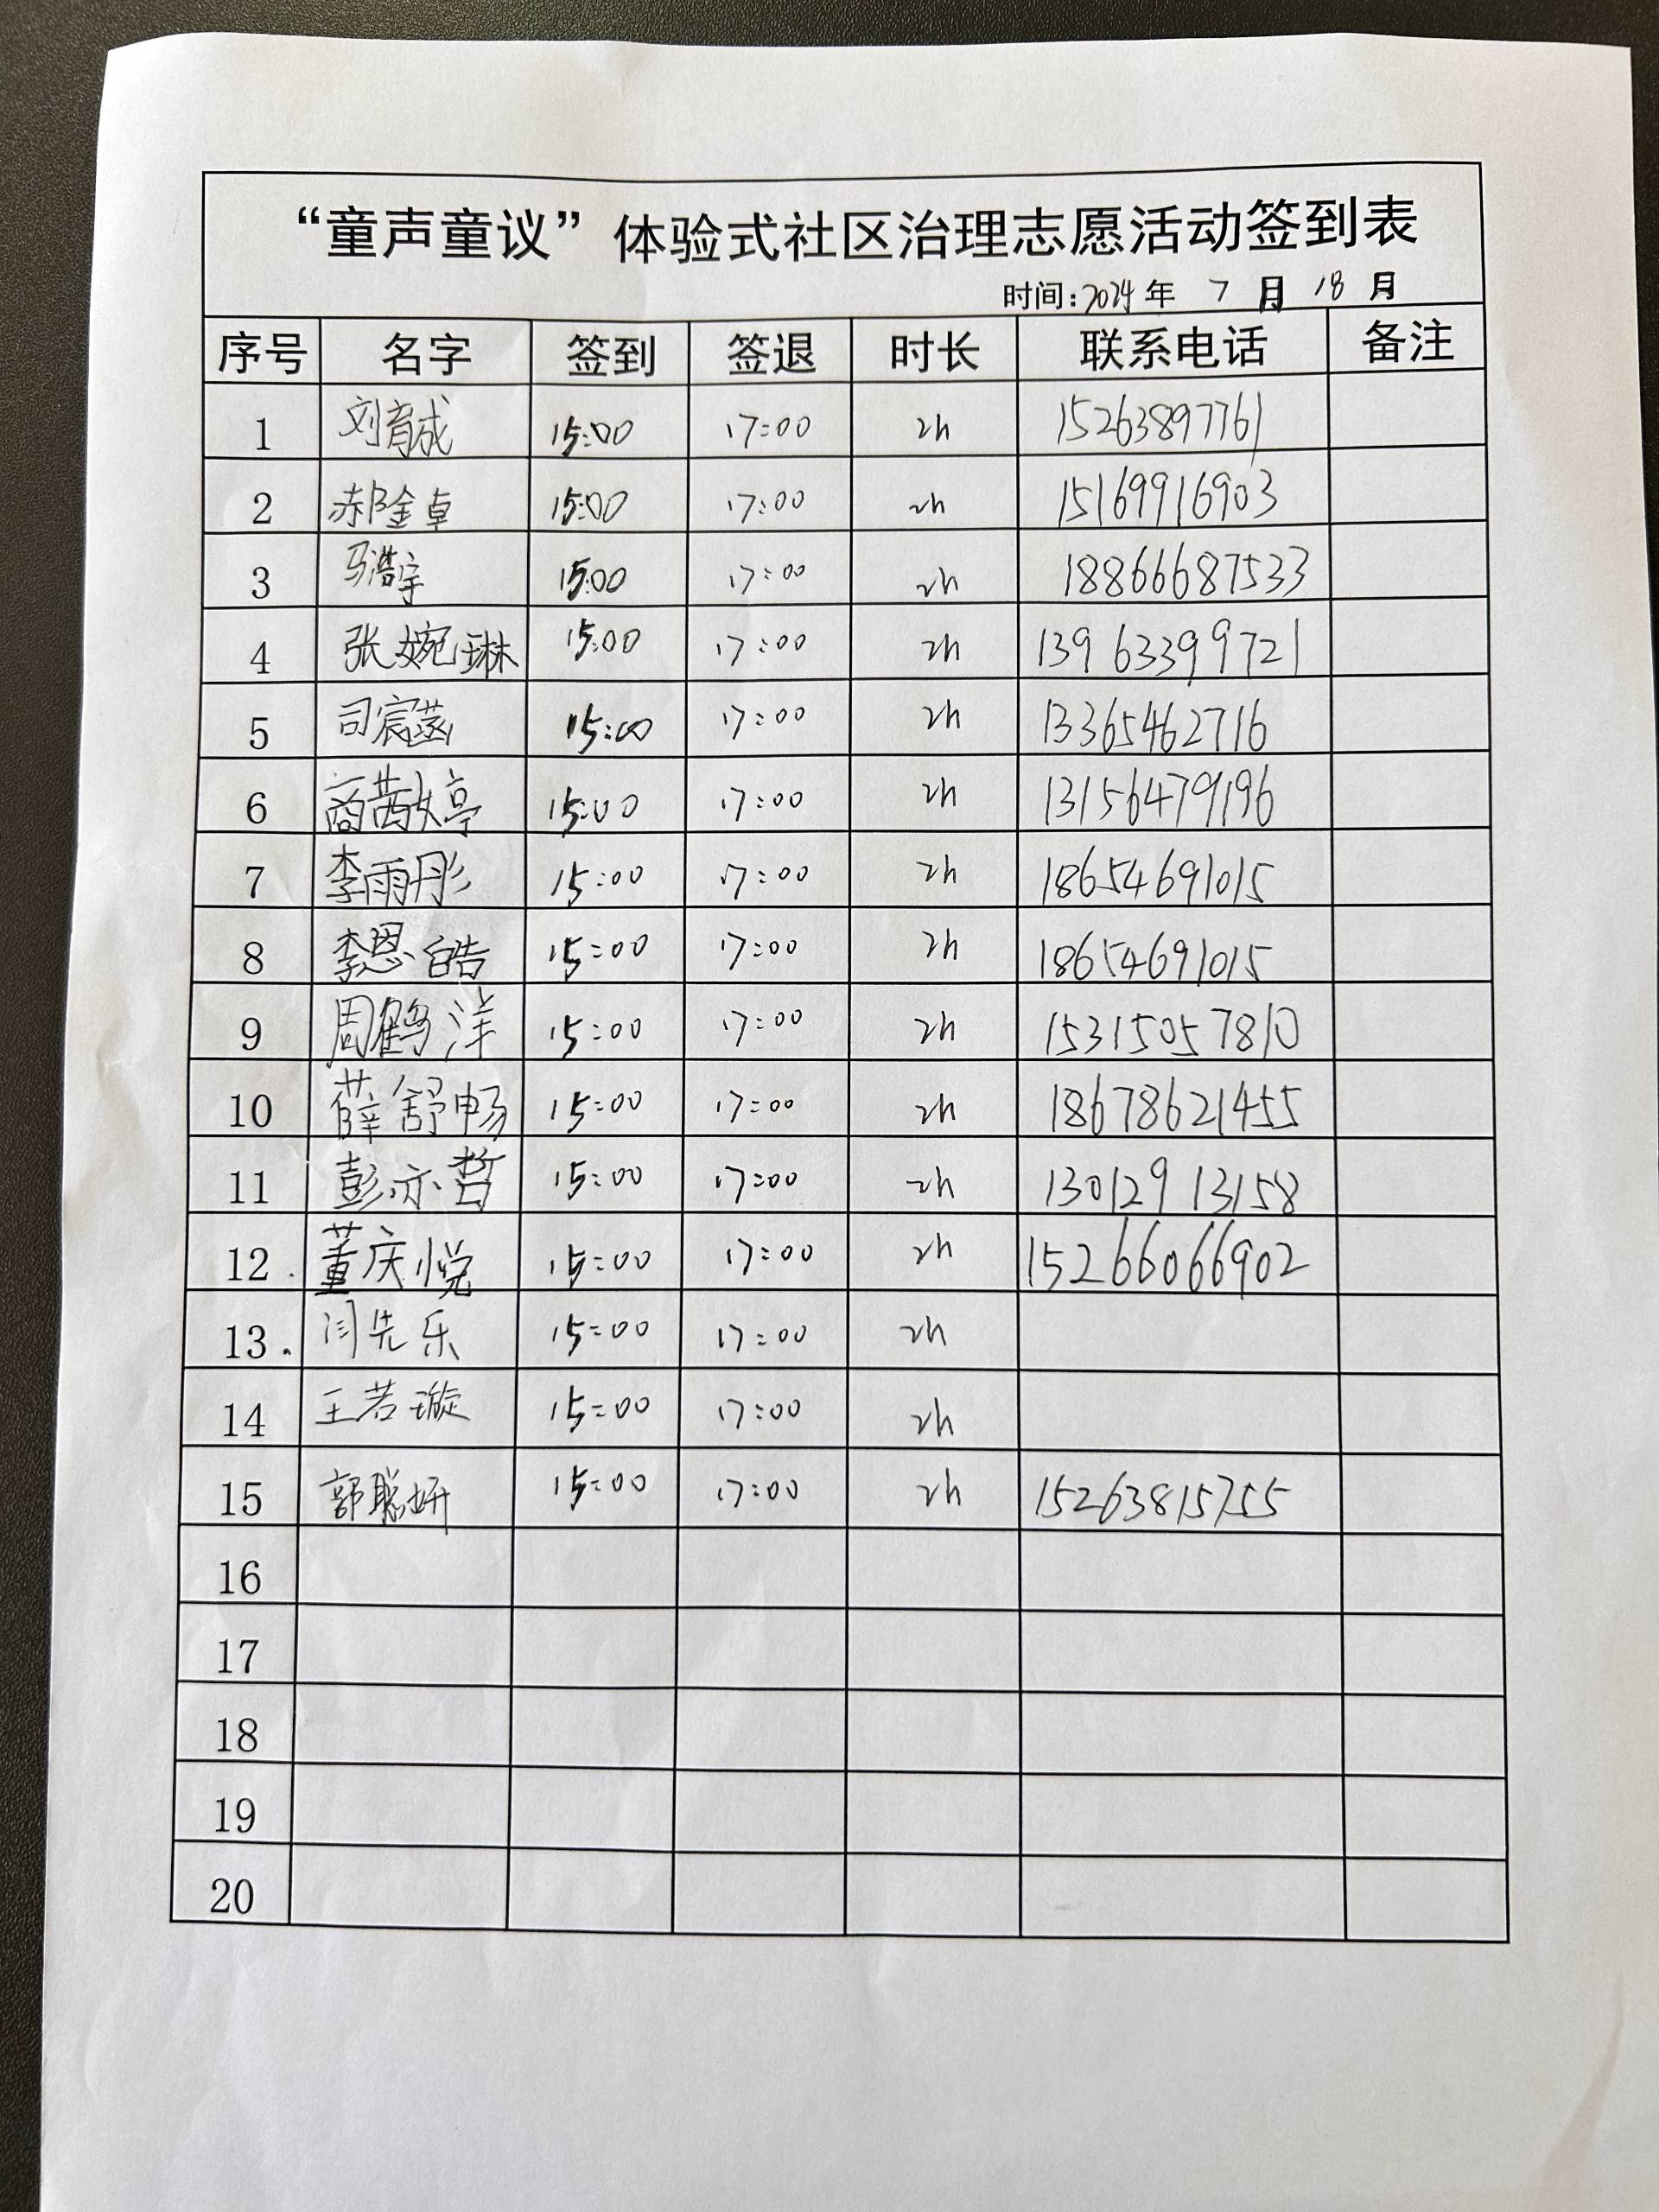 “童声童议”体验式社区治理志愿活动签到表
时间:2024年 7 月 18 月
序号 名字 签到 签退 时长 联系电话 备注
1 刘育成 15:00 17:00 2h 15263897761
2 郝金卓 15:00 17:00 2h 15169916903
3 马浩宇 15:00 17:00 2h 18866687533
4 张婉琳 15:00 17:00 2h 13963399721
5 司宸菡 15:00 17:00 2h 13365462716
6 商茜婷 15:00 17:00 2h 13156479196
7 李雨彤 15:00 17:00 2h 18654691015
8 李恩皓 15:00 17:00 2h 18654691015
9 周鹤洋 15:00 17:00 2h 15315057810
10 薛舒畅 15:00 17:00 2h 18678621455
11 彭亦哲 15:00 17:00 2h 13012913158
12 董庆悦 15:00 17:00 2h 15266066902
13 闫先乐 15:00 17:00 2h
14 王若璇 15:00 17:00 2h
15 郭聪妍 15:00 17:00 2h 15263815755
16
17
18
19
20